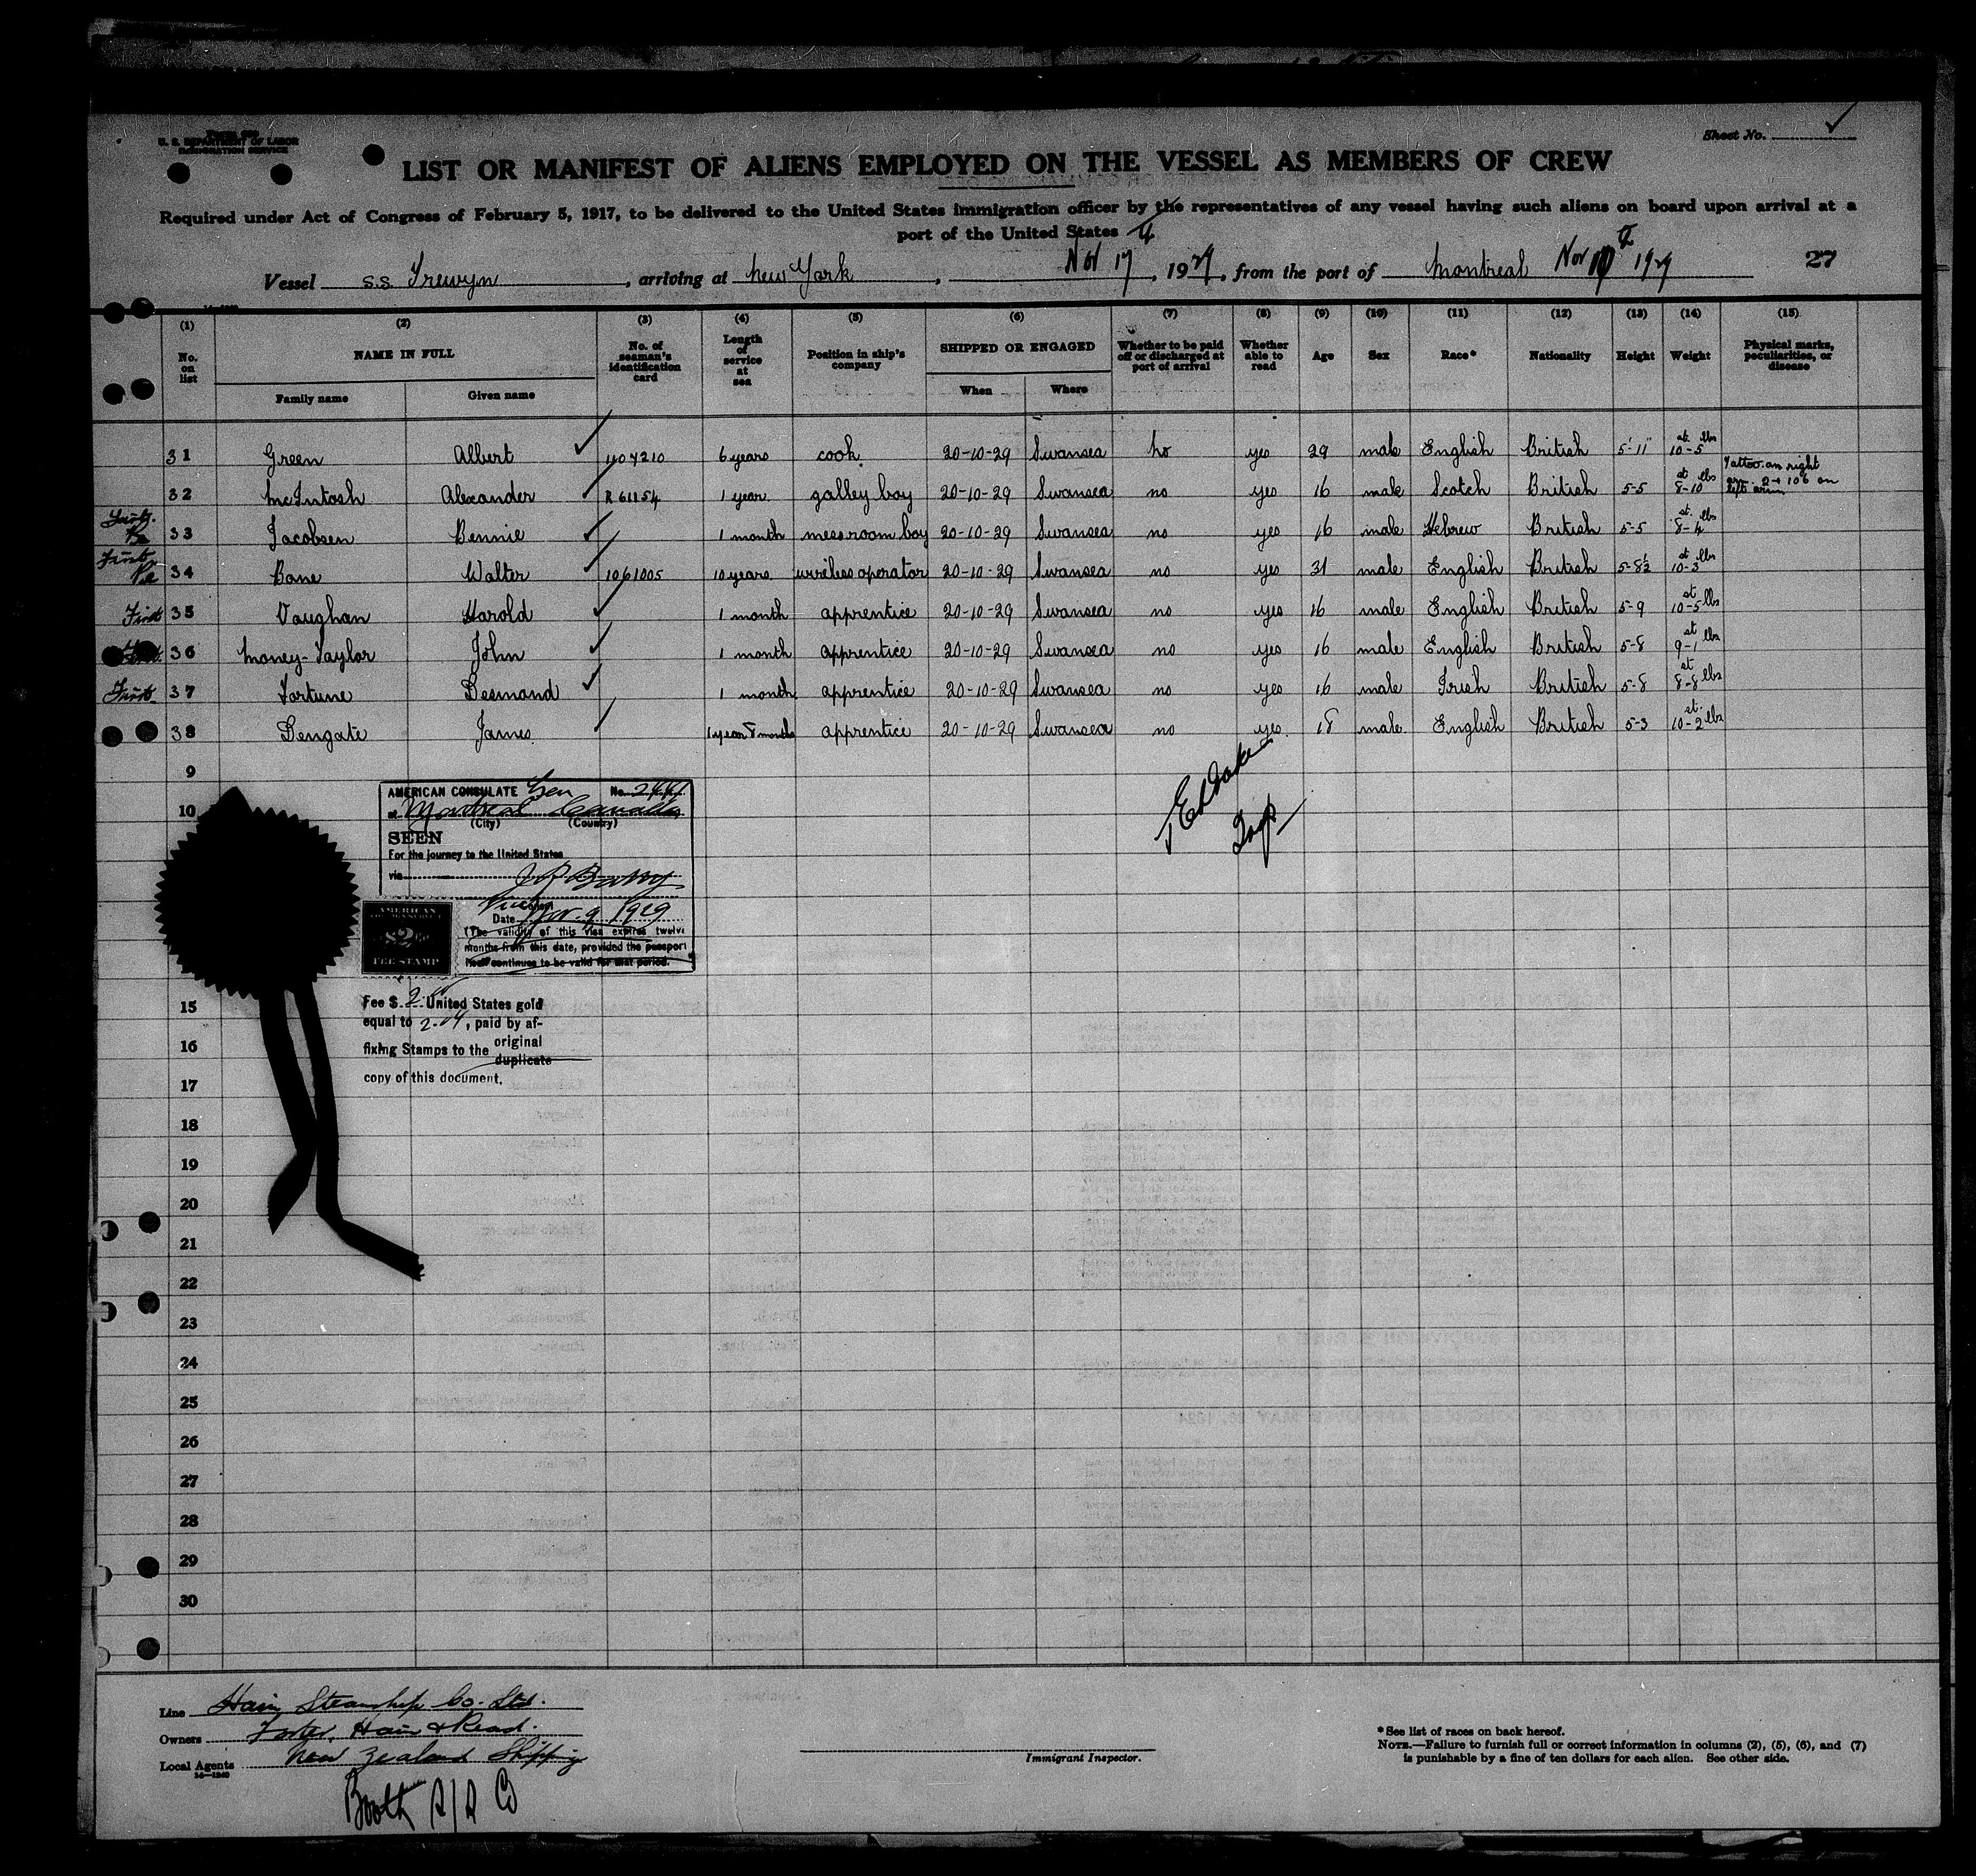 Form 689
U. S. DEPARTMENT OF LABOR
IMMIGRATION SERVICE
Sheet No.
LIST OR MANIFEST OF ALIENS EMPLOYED ON THE VESSEL AS MEMBERS OF CREW
Required under Act of Congress of February 5, 1917, to be delivered to the United States immigration officer by the representatives of any vessel having such aliens on board upon arrival at a
port of the United States
Vessel s.s. Trewyn, arriving at New York, Nov 17, 1929, from the port of Montreal Nov 1929 27
(1) (2) (3) (4) (5) (6) (7) (8) (9) (10) (11) (12) (13) (14) (15)
No. on list NAME IN FULL No. of seaman's identification card Length of service at sea Position in ship's company SHIPPED OR ENGAGED Whether to be paid off or discharged at port of arrival Whether able to read Age Sex Race* Nationality Height Weight Physical marks, peculiarities, or disease
Family name Given name When Where
31 Green Albert 1107210 6 years cook 20-10-29 Swansea no yes 29 male English British 5'-11" st. lbs 10-5
32 McIntosh Alexander R61154 1 year galley boy 20-10-29 Swansea no yes 16 male Scotch British 5-5 st lbs 8-10 Tattoo on right arm on left arm
33 Jacobsen Bennie 1 month messroom boy 20-10-29 Swansea no yes 16 male Hebrew British 5-5 st. lbs 8-4
First 34 Bane Walter 1061005 10 years wireless operator 20-10-29 Swansea no yes 31 male English British 5-8½ st lbs 10-3
First 35 Vaughan Harold 1 month apprentice 20-10-29 Swansea no yes 16 male English British 5-9 st 10-5 lbs
36 Money-Taylor John 1 month apprentice 20-10-29 Swansea no yes 16 male English British 5-8 st lbs 9-1
First 37 Fortune Desmond 1 month apprentice 20-10-29 Swansea no yes 16 male Irish British 5-8 st 8-8 lbs
38 Dengate James 1 year 8 months apprentice 20-10-29 Swansea no yes 18 male English British 5-3 st. 10-2 lbs
9
10
AMERICAN CONSULATE Gen No. 2441
at Montreal Canada
(City) (Country)
SEEN
For the journey to the United States
via
Vice Consul
Date Nov. 9 1929
(The validity of this visa expires twelve
months from this date, provided the passport
itself continues to be valid for that period.
AMERICAN
$2
FEE STAMP
Insp
Fee $ 2 United States gold
equal to 2.04, paid by af-
fixing Stamps to the original
duplicate
copy of this document.
15
16
17
18
19
20
21
22
23
24
25
26
27
28
29
30
Line Hain Steamship Co. Ltd.
Owners Foster, Hain & Read.
Local Agents New Zealand Shipping
14—1240
Booth S/S Co
Immigrant Inspector.
*See list of races on back hereof.
NOTE.—Failure to furnish full or correct information in columns (2), (5), (6), and (7)
is punishable by a fine of ten dollars for each alien. See other side.